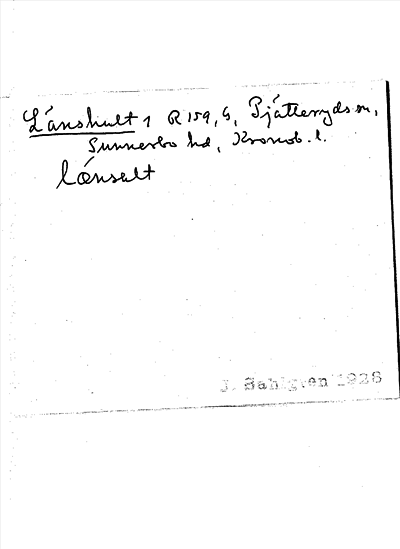 Länshult 1 R 159, G, Pjätteryds sn,
Sunnerbo hd, Kronob. l.
lænsålt
J. Sahlgren 1926